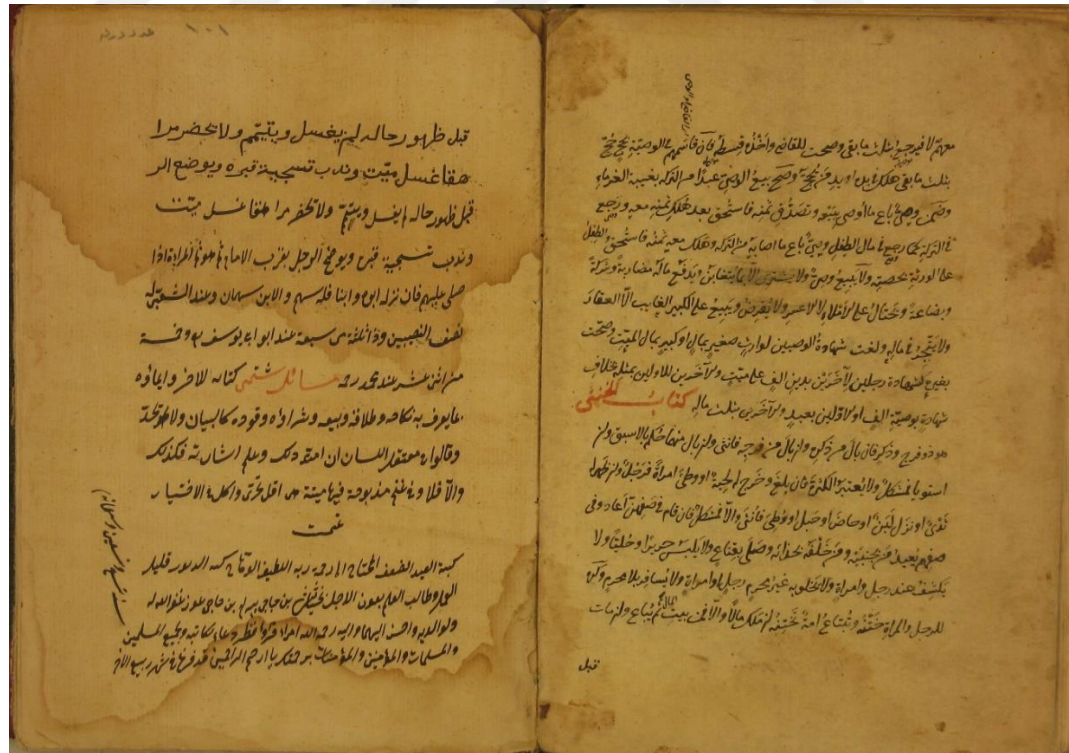 معهم لا فيرجع بثلث ما بقي وصحت للقاضي وأخذه قسطه فان قاسمهم في الوصية بحج حج
بثلث ما بقي هلك في يده او يد من يحج وصح بيع الوصي عبدا من التركة بغيبة الغرماء
وضمن وصي باع ما أوصي ببيعه وتصدق ثمنه فاستحق بعد هلك ثمنه معه ورجع
في التركة كما يرجع في مال الطفل وصي باع ما اصابه من التركة وهلك معه ثمنه فاستحق والطفل
على الورثة بحصته ولا يبيع وصي ولا يشتري الا بما يتغابن ويدفع ماله مضاربة وشركة
وبضاعة ويحتال على الاملاء لا الاعسر ولا يقرض ويبيع على الكبير الغايب الا العقار
ولا يتجر في ماله ولغت شهادة الوصيين لوارث صغير بمال او كبير بمال الميت وصحت
بغيره كشهادة رجلين لآخرين بدين الف على ميت ولآخرين للاولين بمثله بخلاف
شهادة بوصية الف او لاولين بعبد ولآخرين بثلث ماله كتاب الخنثى
هو ذو فرج وذكر فان بال من ذكره وان بال من فرجه فانثى وان بال منهما حكم بالاسبق وان
استويا فمشكل ولا يعتبر الكثرة فان بلغ وخرج له لحية او وطئ امرأة فرجل وان ظهر له
ثدي او نزل لبن او حاض او حبل او وطئ فانثى والا فمشكل فان قام في صفهن أعاد وفي
صفهم يعيد من بجنبيه ومن خلفه بحذائه وصلى بقناع ولا يلبس حريرا وحليا ولا
يكشف عند رجل وامراة ولا يخلو به غير محرم رجل او امراة ولا يسافر بلا محرم وكره
للرجل والمراة ختنه وتبتاع امة تختنه ان ملك مالا والا فمن بيت المال ثم يباع وان مات
قبل
١٠١
قبل ظهور حاله لم يغسل ويتيمم ولا يحضر مرا
هقا غسل ميت وندب تسجية قبره ويوضع الر
قبل ظهور حاله لم يغسل ويتيمم ولا يحضر مراهقا غسل ميت
وندب تسجية قبره ويوضع الرجل بقرب الامام ثم هو ثم المراة اذا
صلى عليهم فان تركه ابوه وابنا فله سهم والابن سهمان وعند الشعبي له
نصف النصيبين وذا ثلثة من سبعة عند ابي يوسف وخمسة
من اثنى عشر عند محمد رحمه مسائل شتى كتابة الاخرس وايماؤه
بما يعرف به نكاحه وطلاقه وبيعه وشراؤه وقوده كالبيان ولا يحد
وقالوا في معتقل اللسان ان امتد ذلك وعلم اشارته فكذلك
والا فلا وفي غنم مذبوحة فيها ميتة هي اقل تحرى واكل في الاختيار
تمت
كتبه العبد الضعيف المحتاج الى رحمة ربه اللطيف كثير قليل
العمل وطالب العلم بعون الاجل بن حاجي بن حاجي عفر الله له
ولوالديه واحسن اليهما واليه رحم الله امراء قرأ ونظر ودعا لكاتبه ولجميع المسلمين
والمسلمات والمؤمنين والمؤمنات برحمتك يا ارحم الراحمين قد فرغ في شهر ربيع الاخر
سنة تسع وخمسين وثمانمائة